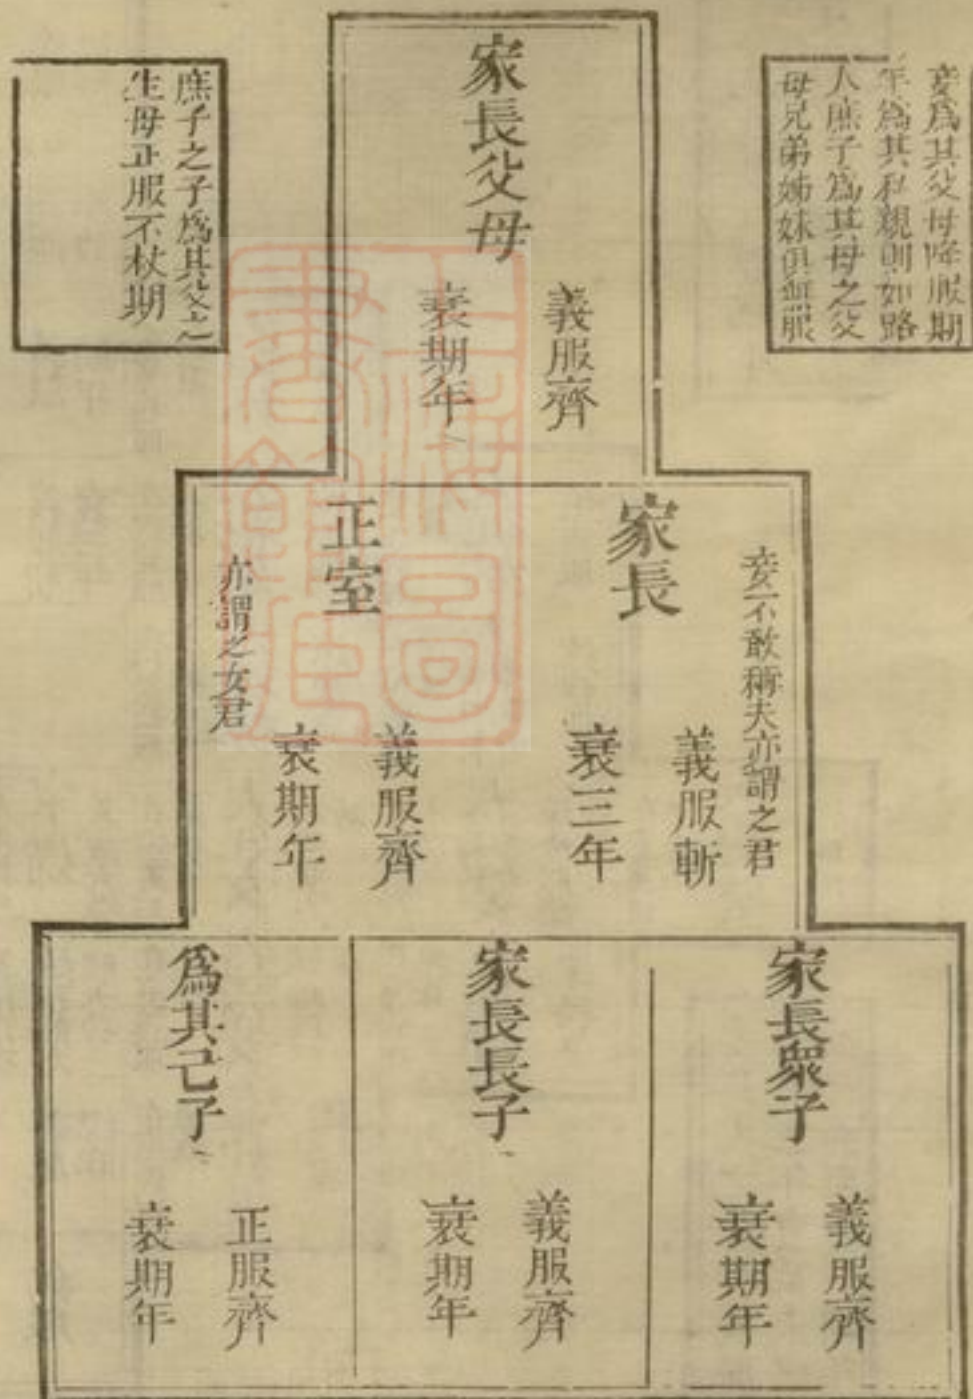 妾爲其父母降服期
年爲其私親則如路
人庶子爲其母之父
母兄弟姊妹俱無服
家長父母
義服齊
衰期年
庶子之子爲其父之
生母正服不杖期
妾不敢稱夫亦謂之君
家長
義服斬
衰三年
正室
義服齊
衰期年
亦謂之女君
家長衆子
義服齊
衰期年
家長長子
義服齊
衰期年
爲其己子
正服齊
衰期年
上海圖
書館藏